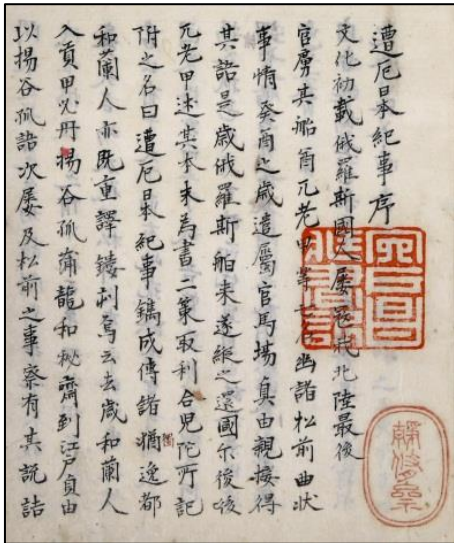 遭厄日本紀事序
文化初載俄羅斯國人屢寇我北陸最後
官虜其船酋兀老甲等七名幽諸松前曲狀
事情癸酉之歲遣屬官馬場貞由親接得
其語是歲俄羅斯舶来遂縱之還國尓後
兀老甲述其本末為書二策取利合児陀所記
附之名曰遭厄日本紀事鐫成傳諸獨逸都
和蘭人亦既重譯鏤刺焉云去歲和蘭人
入貢甲必丹揚谷孤蒲龍和秘齋到江戸貞由
以揚谷孤語次屡及松前之事察有其説詰